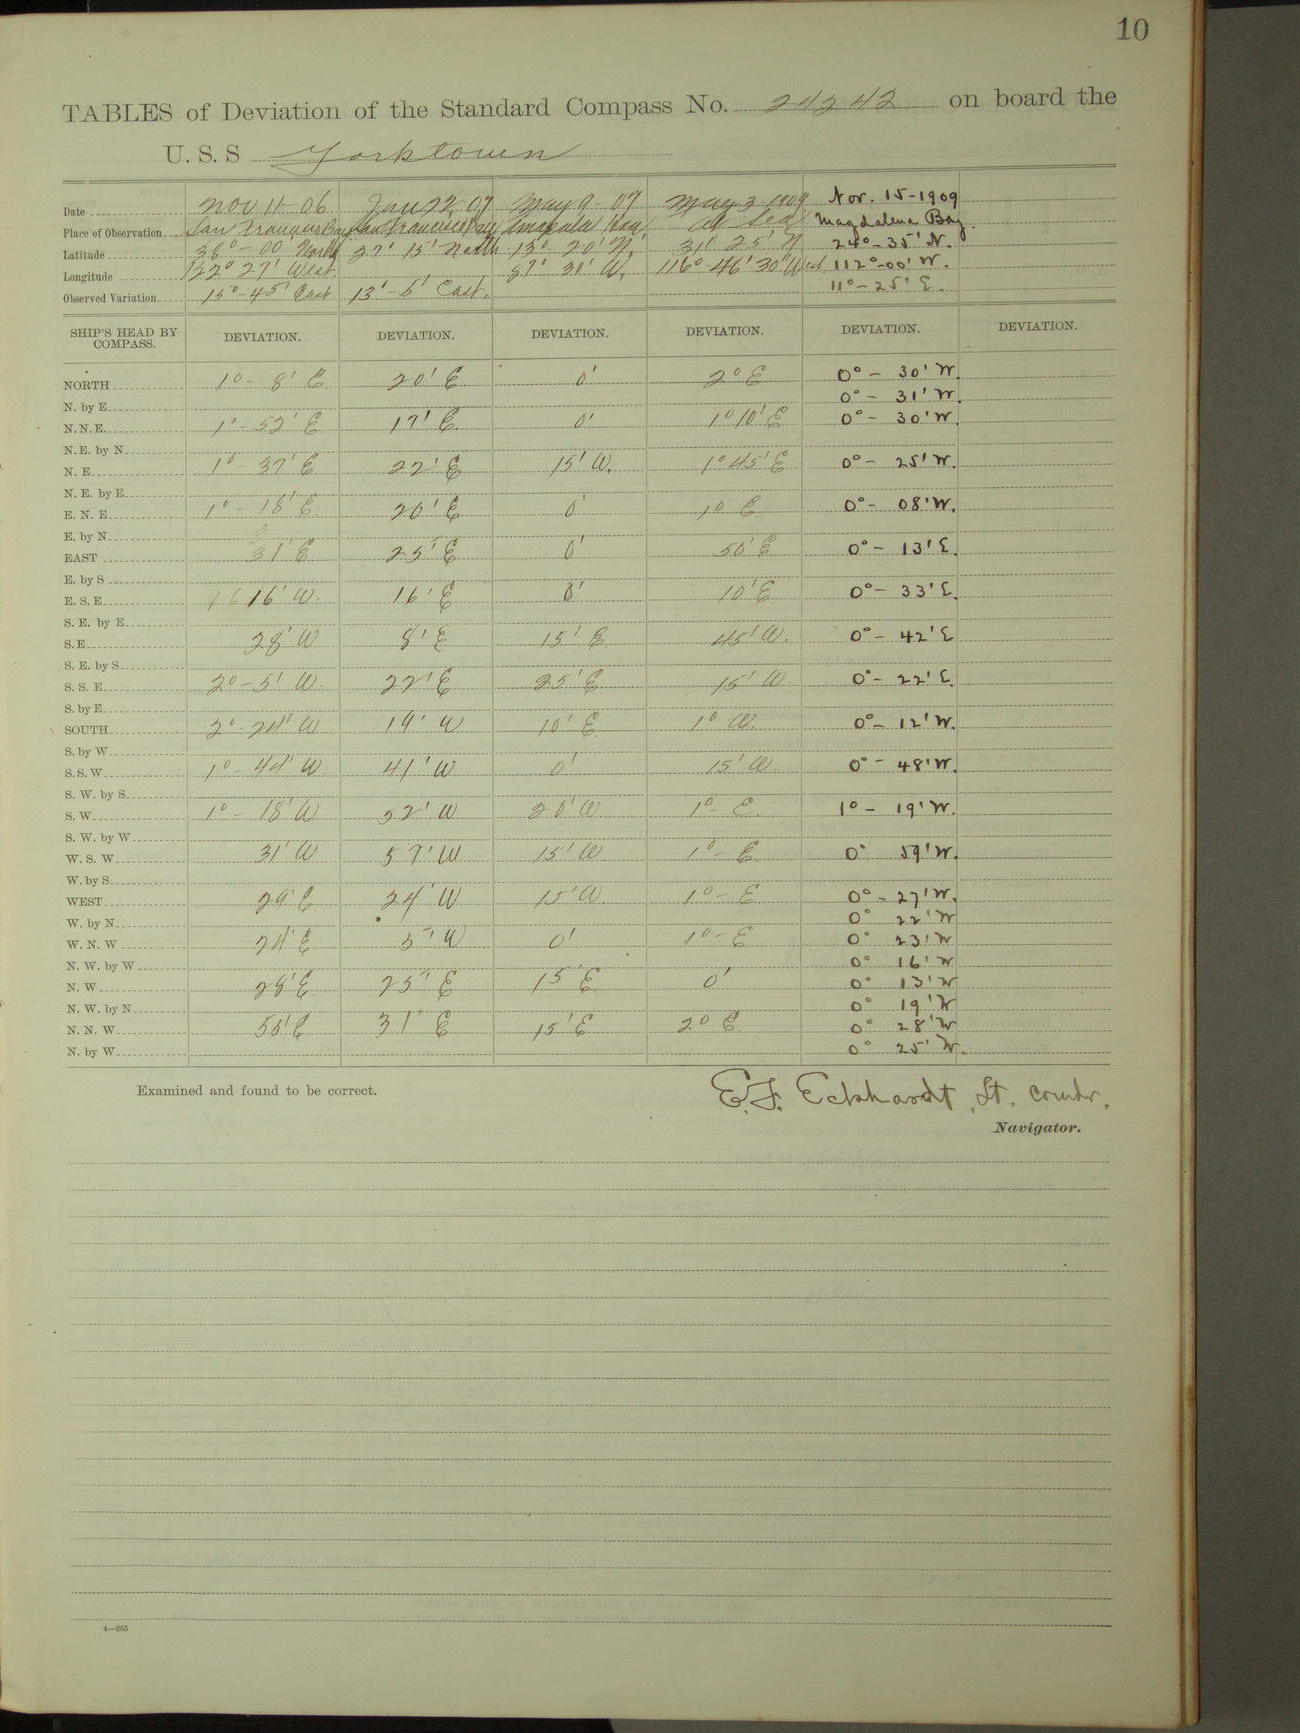 10
TABLES of Deviation of the Standard Compass No. 24242 on board the
U. S. S Yorktown
Date Nov 11-06 Jan 22-07 May 9-07 May 3-1909 Nov. 15-1909
Place of Observation San Francisco Bay San Francisco Bay Amapala Hon At Sea Magdalena Bay.
Latitude 38°-00' North 37° 15' North 13° 20' N. 31° 25' N 24°-35' N.
Longitude 122° 27' West 87° 30' W. 116° 46' 30" West 112°-00' W.
Observed Variation 15°-45' East 13'-6' East. 11°-25' E.
SHIP'S HEAD BY COMPASS. DEVIATION. DEVIATION. DEVIATION. DEVIATION. DEVIATION. DEVIATION.
NORTH 1°-8' E 20' E 0' 2° E 0°-30' W.
N. by E 0°-31' W.
N. N. E. 1°-52' E 17' E. 0' 1° 10' E 0°-30' W.
N. E. by N
N. E. 1° 37' E 22' E 15' W. 1° 45' E 0°-25' W.
N. E. by E
E. N. E 1° 18' E 20' E 0' 1° E 0°-08' W.
E. by N
EAST 31' E 25' E 0' 50' E 0°-13' E.
E. by S
E. S. E 16' W. 16' E 0' 10' E 0°-33' E.
S. E. by E
S. E 28' W 8' E 15' E 45' W. 0°-42' E
S. E. by S
S. S. E 2°-5' W. 22' E 25' E 15' W 0°-22' E.
S. by E
SOUTH 2°-24' W 19' W 10' E 1° W. 0°-12' W.
S. by W
S. S. W 1°-44' W 41' W 0' 15' W. 0°-48' W.
S. W. by S
S. W 1°-18' W 52' W 20' W 1°-E. 1°-19' W.
S. W. by W
W. S. W 31' W 57' W 15' W 1°-E 0° 59' W.
W. by S
WEST 29' E 24' W 15' W. 1°-E 0°-27' W.
W. by N 0° 22' W
W. N. W 24' E 5' W 0' 1°-E 0° 23' W
N. W. by W 0° 16' W
N. W 28' E 25' E 15' E 0' 0° 13' W
N. W. by N 0° 19' W
N. N. W 55' E 31' E 15' E 2° E 0° 28' W
N. by W 0° 25' W.
Examined and found to be correct.
E. F. Eckhardt, Lt. Comdr.
Navigator.
4—265